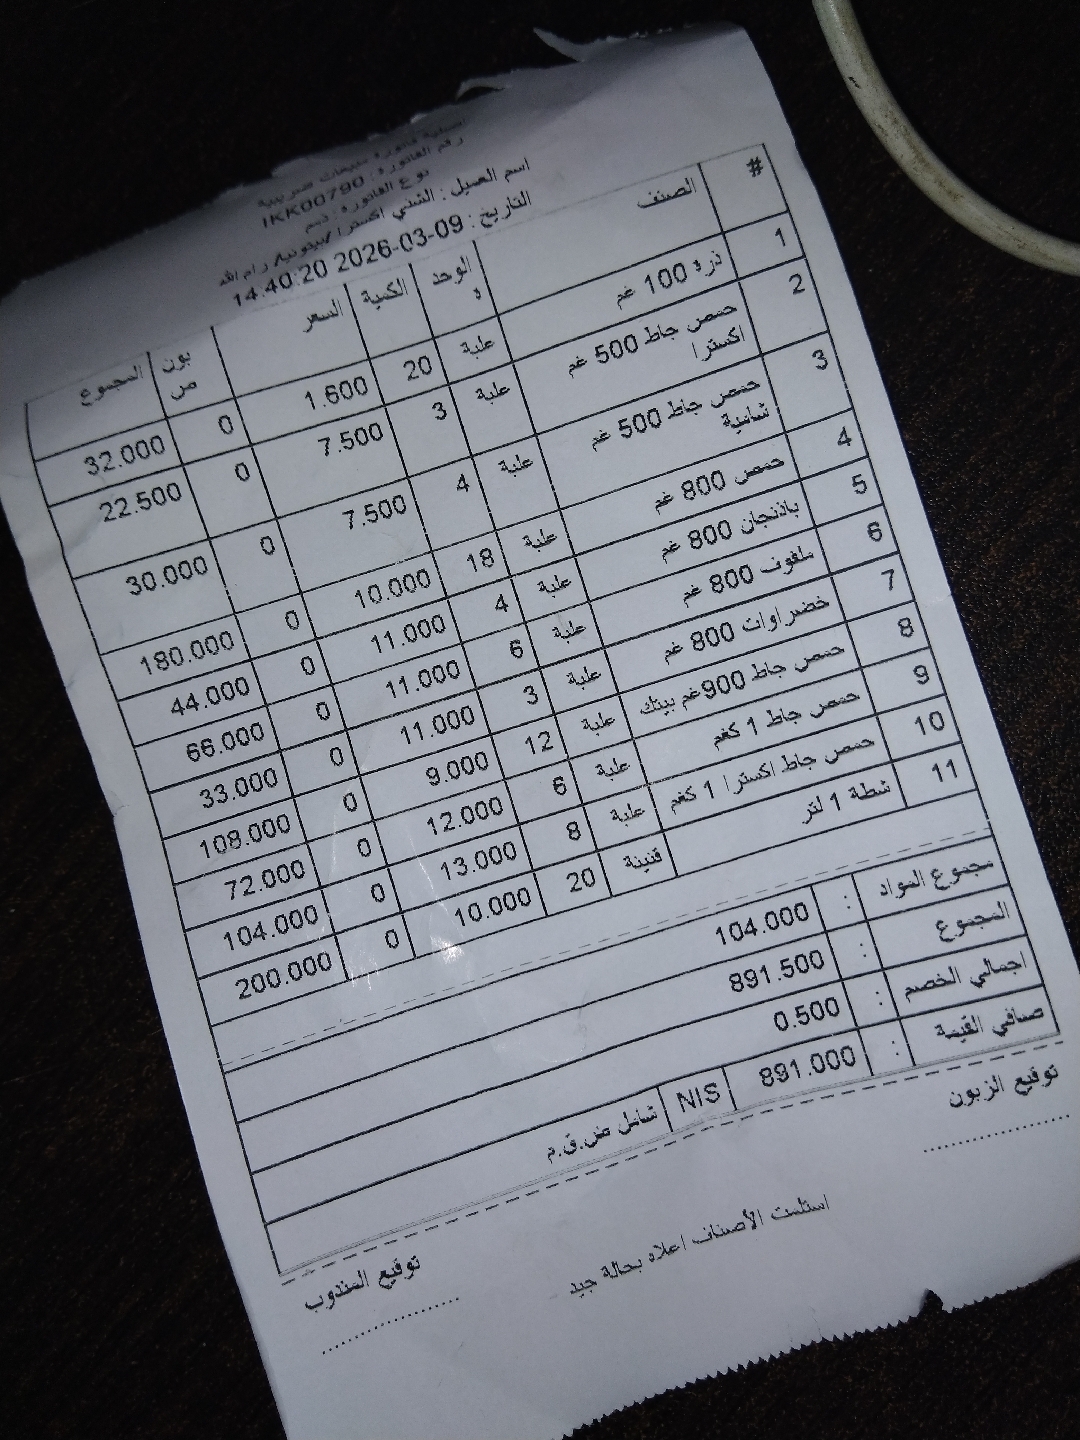 اصلية فاتورة مبيعات ضريبية
رقم الفاتورة: IKK00790
نوع الفاتورة: ذمم
اسم العميل: الشني اكسترا/بيتونيا/ رام الله
التاريخ: 2026-03-09 14:40:20
# الصنف الوحدة الكمية السعر بونص المجموع
1 ذرة 100 غم علبة 20 1.600 0 32.000
2 حمص جاط 500 غم اكسترا علبة 3 7.500 0 22.500
3 حمص جاط 500 غم شامية علبة 4 7.500 0 30.000
4 حمص 800 غم علبة 18 10.000 0 180.000
5 باذنجان 800 غم علبة 4 11.000 0 44.000
6 ملفوف 800 غم علبة 6 11.000 0 66.000
7 خضراوات 800 غم علبة 3 11.000 0 33.000
8 حمص جاط 900غم بيتك علبة 12 9.000 0 108.000
9 حمص جاط 1 كغم علبة 6 12.000 0 72.000
10 حمص جاط اكسترا 1 كغم علبة 8 13.000 0 104.000
11 شطة 1 لتر قنينة 20 10.000 0 200.000
مجموع المواد : 104.000
المجموع : 891.500
اجمالي الخصم : 0.500
صافي القيمة : 891.000 NIS شامل ض.ق.م
توقيع الزبون
استلمت الأصناف اعلاه بحالة جيد
توقيع المندوب